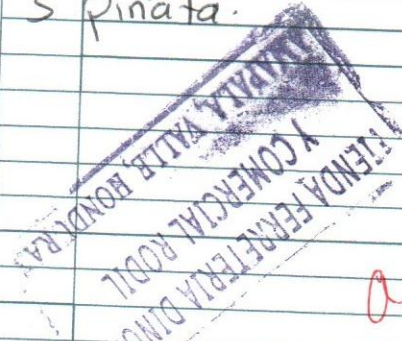 5 piñata.
TIENDA FERRETERIA
Y COMERCIAL RODIL
VALLE, HONDURAS